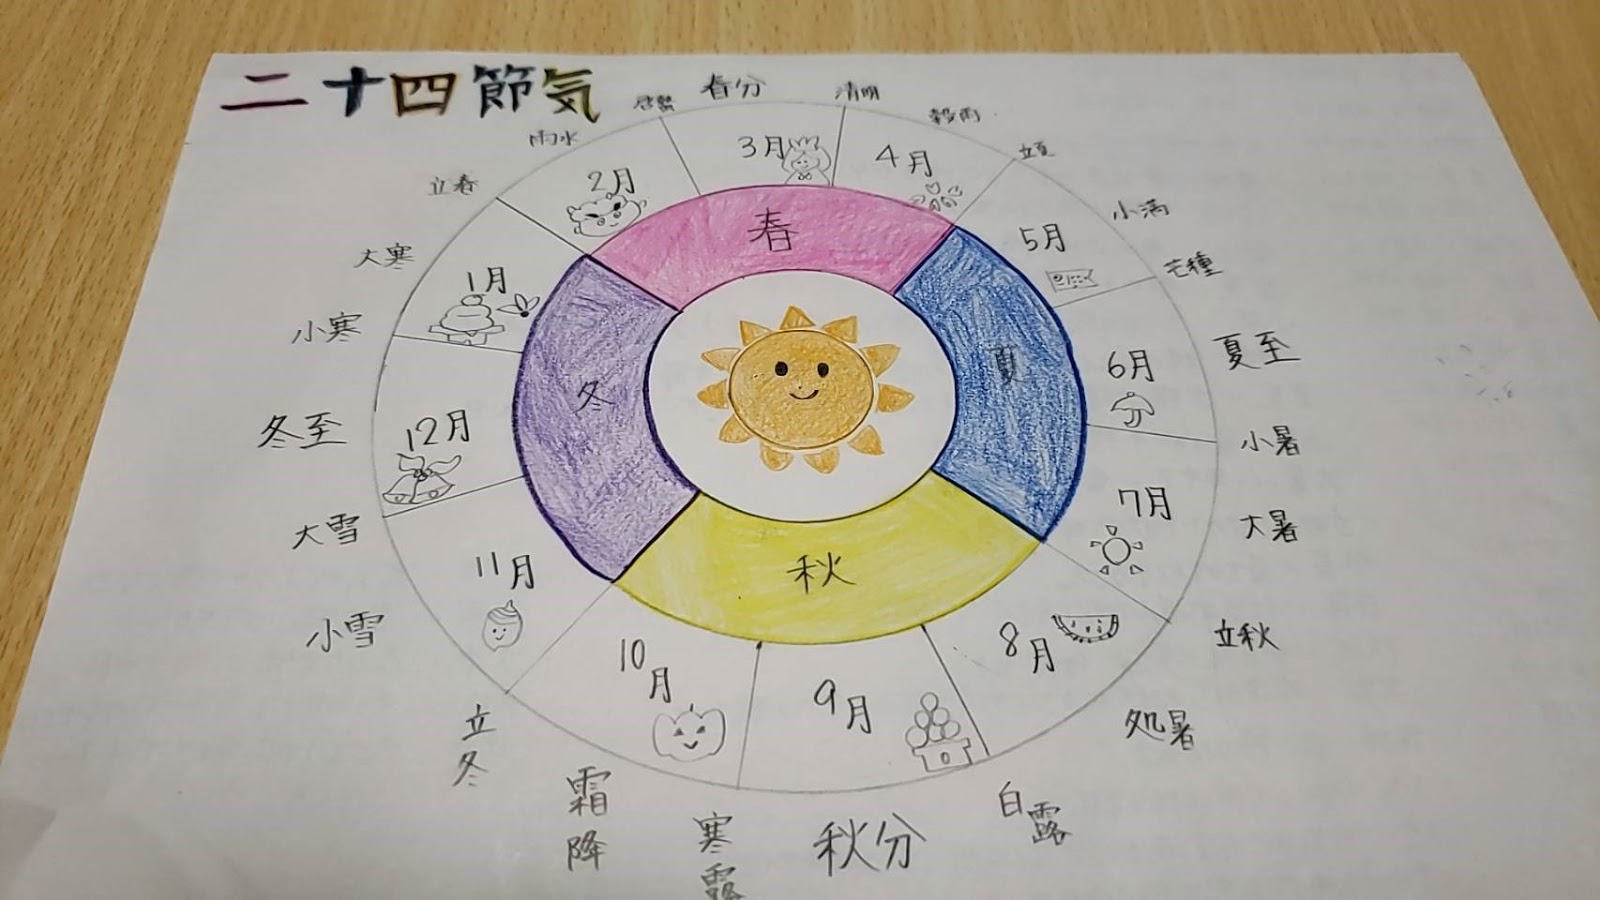 二十四節気
春分
清明
穀雨
立夏
小満
芒種
夏至
小暑
大暑
立秋
処暑
白露
秋分
寒露
霜降
立冬
小雪
大雪
冬至
小寒
大寒
立春
雨水
啓蟄
1月
2月
3月
4月
5月
6月
7月
8月
9月
10月
11月
12月
春
夏
秋
冬